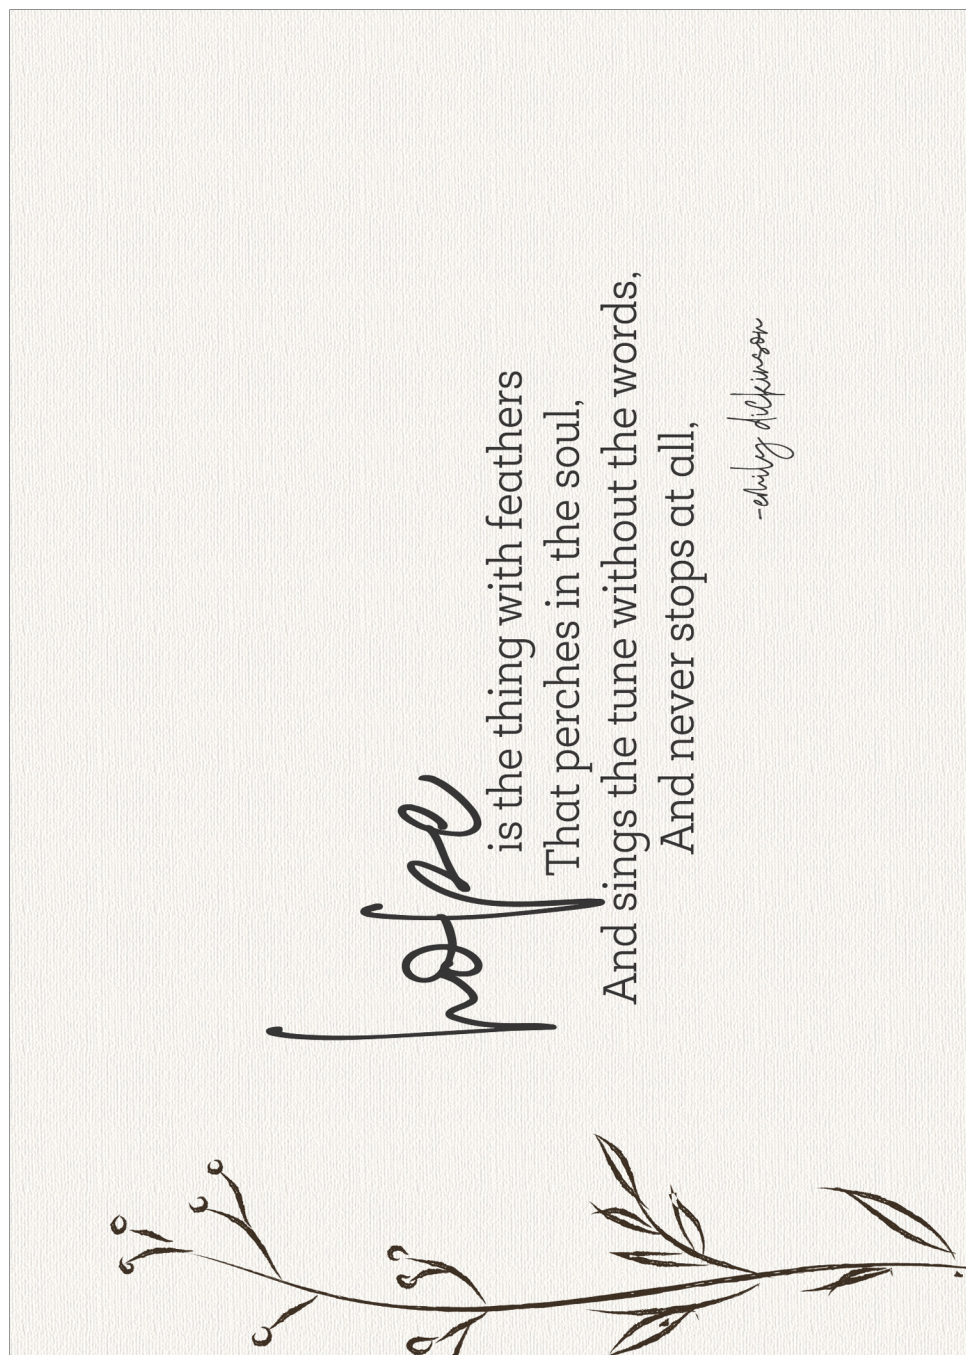 hope
is the thing with feathers
That perches in the soul,
And sings the tune without the words,
And never stops at all,
-emily dickinson